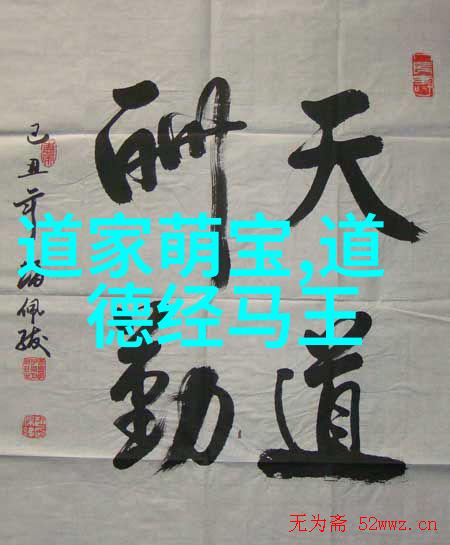 天道
酬勤
己丑年 佩
道家萌宝,道
德经马王
无为斋 52wwz.cn